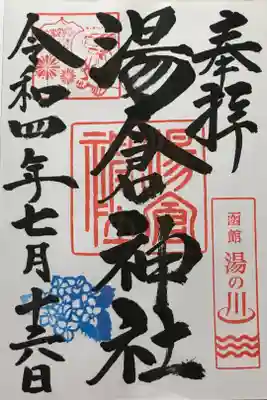 奉拝
函館 湯の川
湯倉神社
令和四年七月十六日